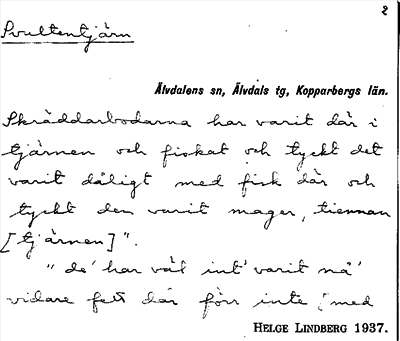 2
Svultentjärn
Älvdalens sn, Älvdals tg, Kopparbergs län.
Skräddarbodarna har varit där i
tjärnen och fiskat och tyckt det
varit dåligt med fisk där och
tyckt den varit mager, tiennan
[tjärnen]".
"de' har väl int' varit nå'
vidare fett där förr inte (med
HELGE LINDBERG 1937.